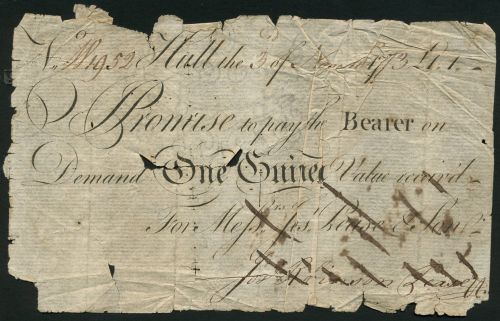 No. M1952 Hull the 3 of 1773 £1.1.-
I Promise to pay the Bearer on
Demand One Guinea Value receiv'd
For Messrs. Jos. Pease & Son
Jos Robinson Pease